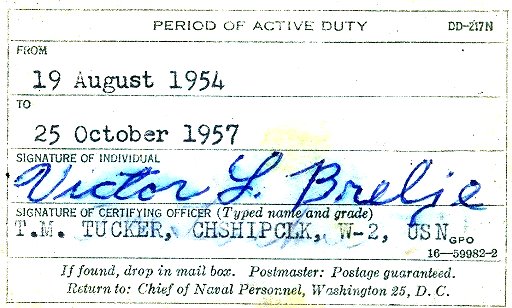 PERIOD OF ACTIVE DUTY DD-217N
FROM
19 August 1954
TO
25 October 1957
SIGNATURE OF INDIVIDUAL
Victor L. Brelje
SIGNATURE OF CERTIFYING OFFICER (Typed name and grade)
T.M. TUCKER, CHSHIPCLK, W-2, USN GPO
16—59982-2
If found, drop in mail box. Postmaster: Postage guaranteed.
Return to: Chief of Naval Personnel, Washington 25, D. C.